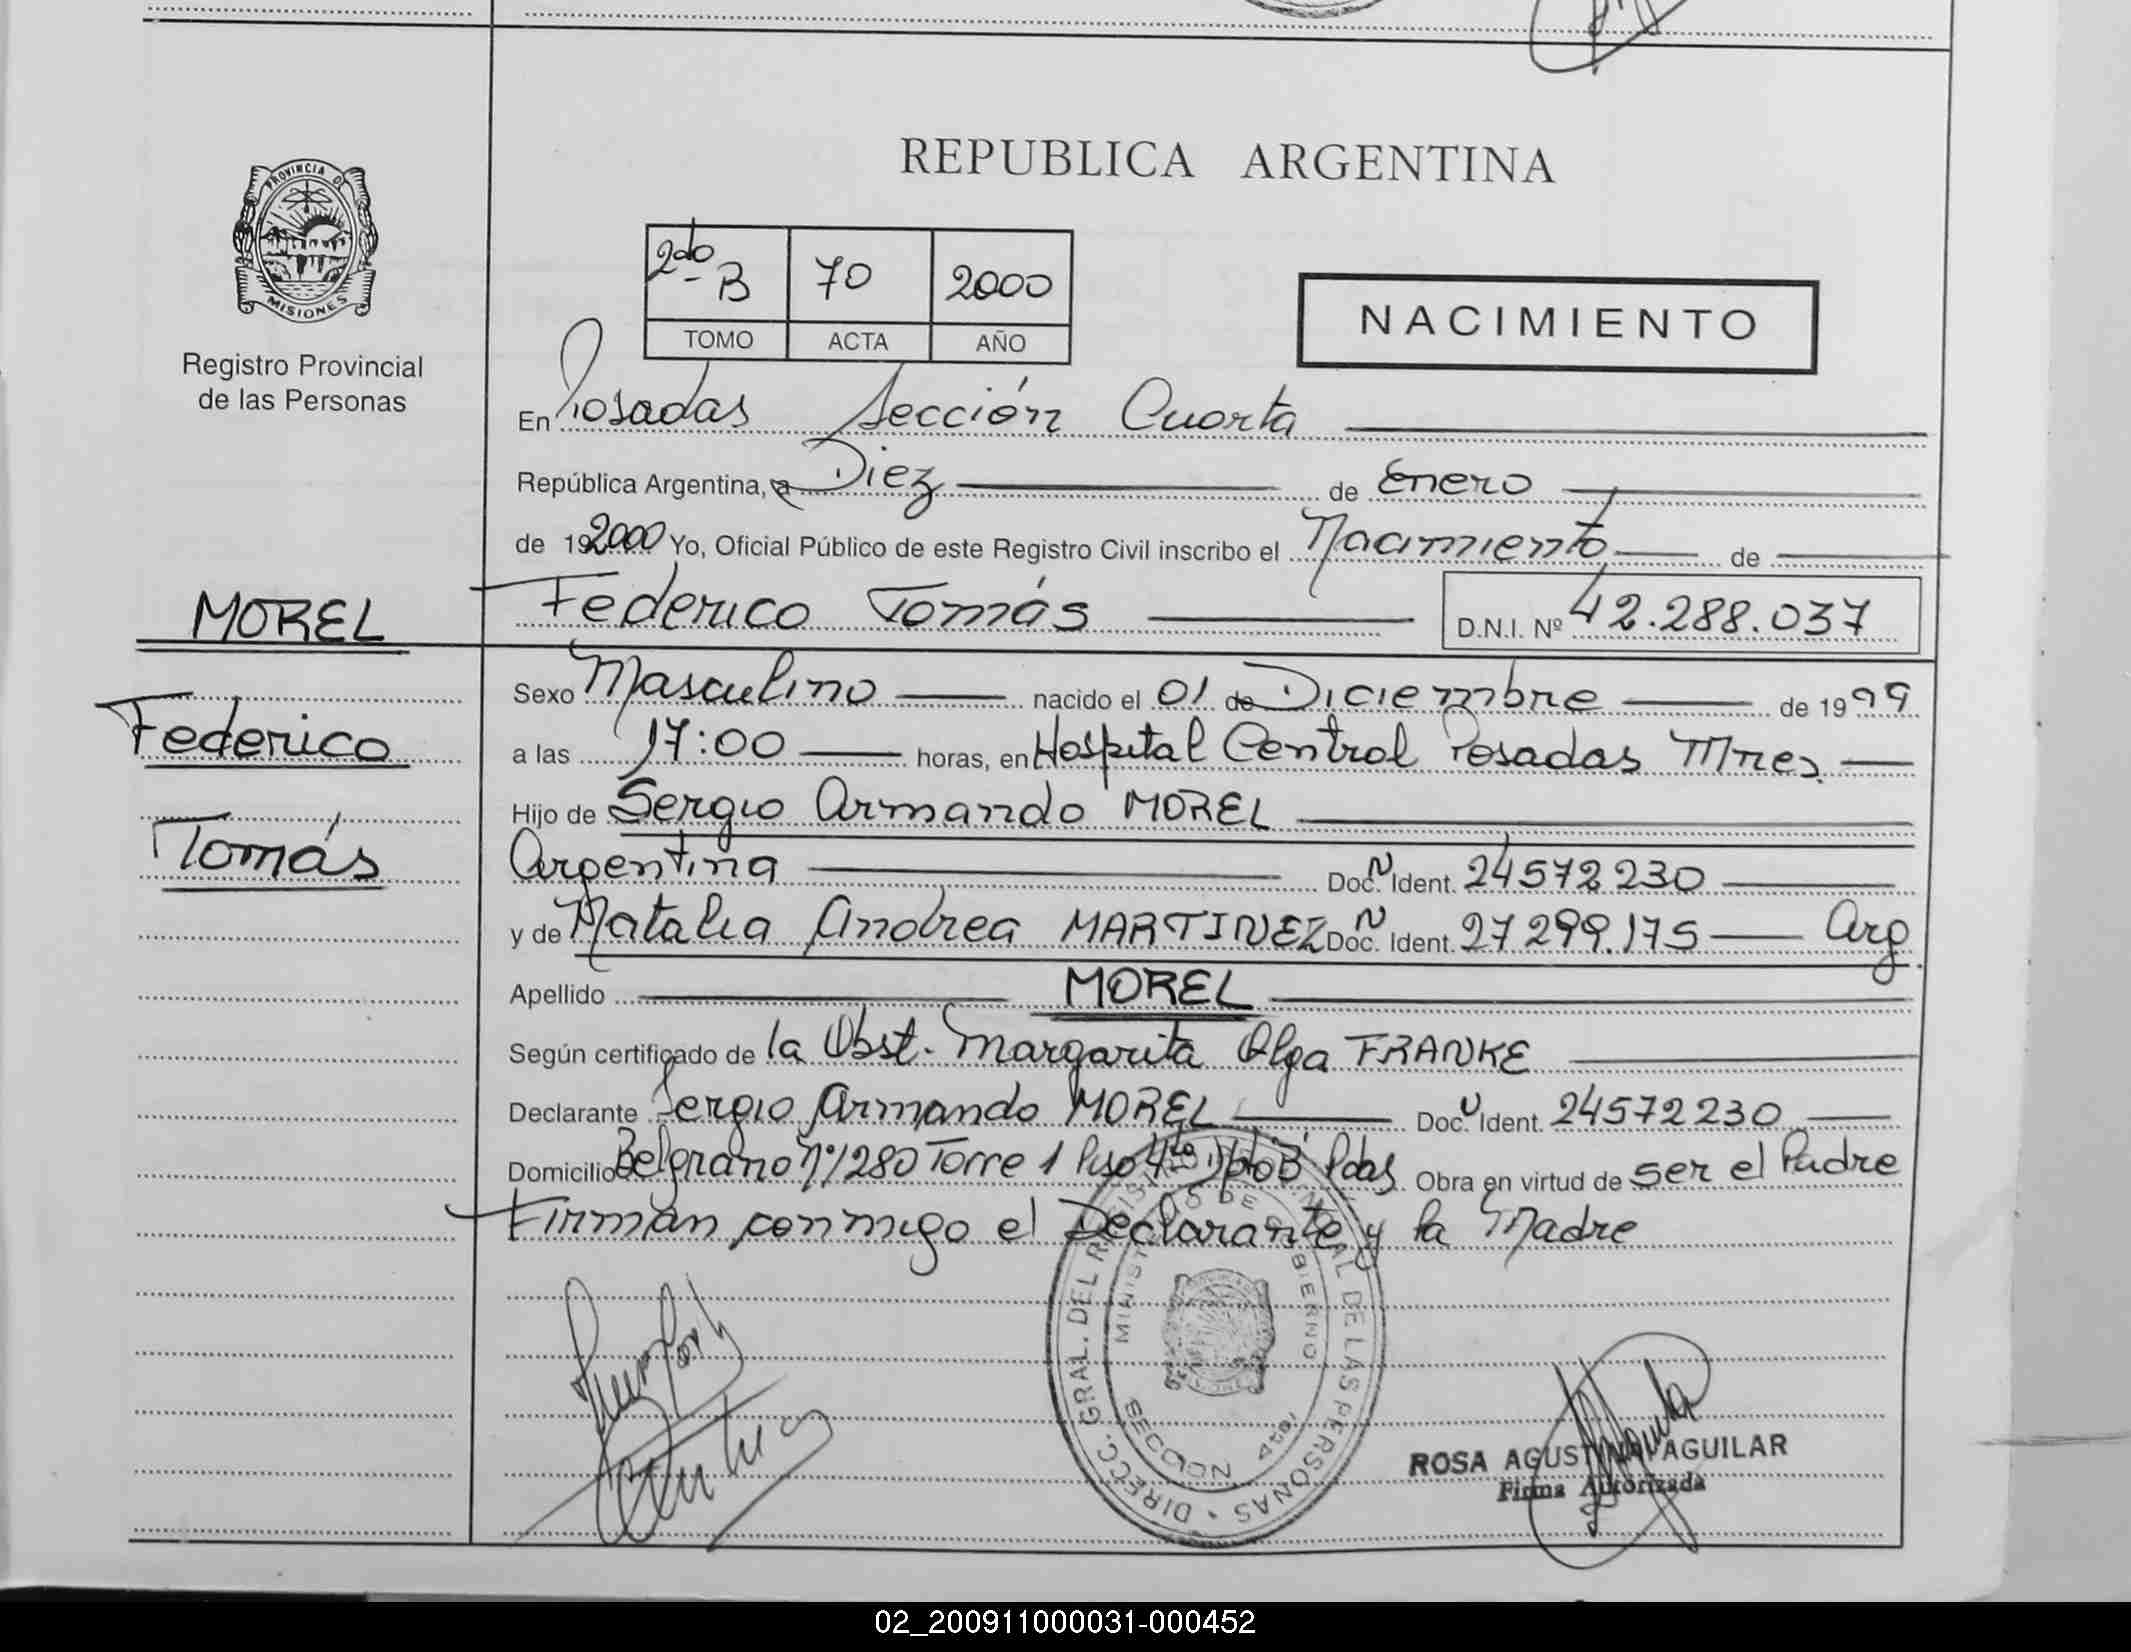 PROVINCIA DE
MISIONES
Registro Provincial
de las Personas
MOREL
Federico
Tomás
REPUBLICA ARGENTINA
2do B 70 2000
TOMO ACTA AÑO
NACIMIENTO
En Posadas Sección Cuarta
República Argentina, a Diez de Enero
de 192000 Yo, Oficial Público de este Registro Civil inscribo el Nacimiento de
Federico Tomás D.N.I. Nº 42.288.037
Sexo Masculino nacido el 01 de Diciembre de 1999
a las 17:00 horas, en Hospital Central Posadas Mnes
Hijo de Sergio Armando MOREL
Argentina Doc. N Ident. 24572230
y de Natalia Andrea MARTINEZ Doc. N Ident. 27.299.175 Arg
Apellido MOREL
Según certificado de la Obst. Margarita Olga FRANKE
Declarante Sergio Armando MOREL Doc. N Ident. 24572230
Domicilio Belgrano Nº 1280 Torre 1 Piso 4to Dpto B Pdas. Obra en virtud de ser el Padre
Firman conmigo el Declarante y la Madre
MINISTERIO DE GOBIERNO
SECCION 4ta
ROSA AGUSTINA AGUILAR
Firma Autorizada
02_200911000031-000452